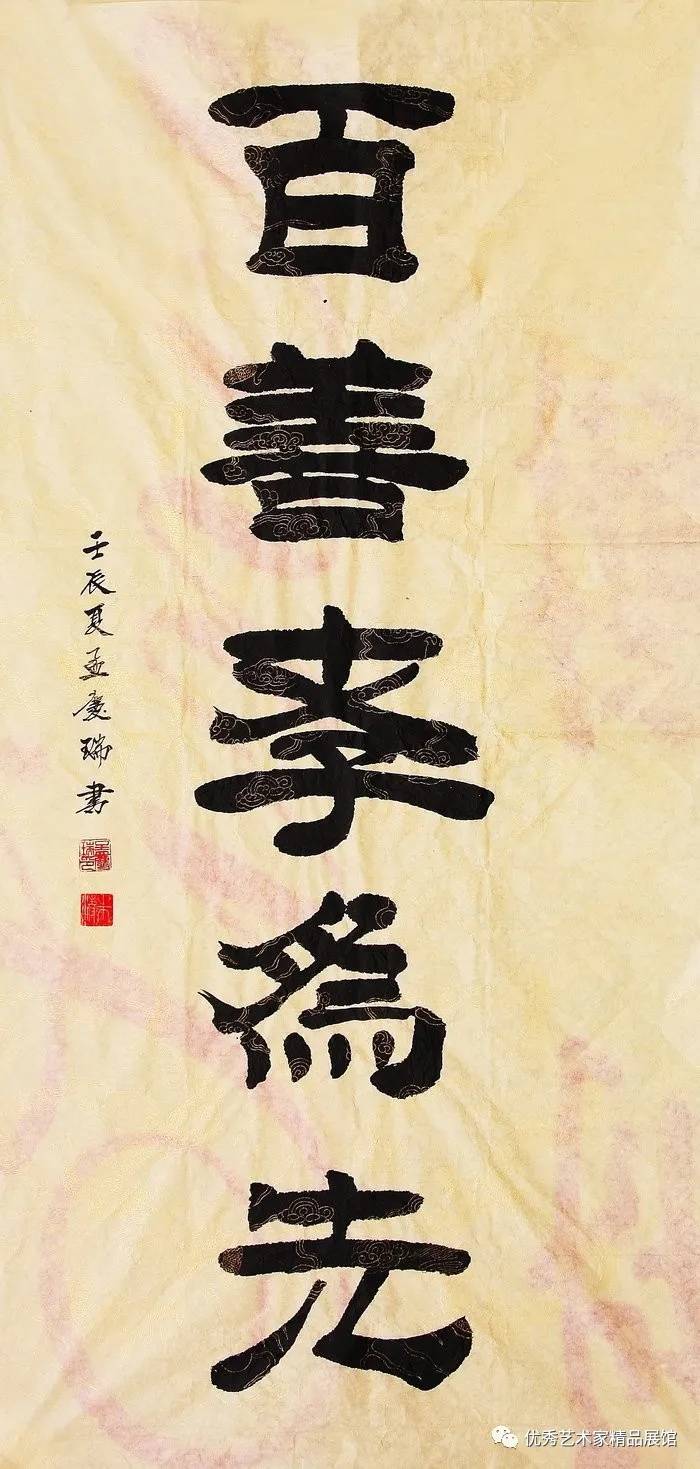 百善孝為先
壬辰夏孟慶瑞書
优秀艺术家精品展馆